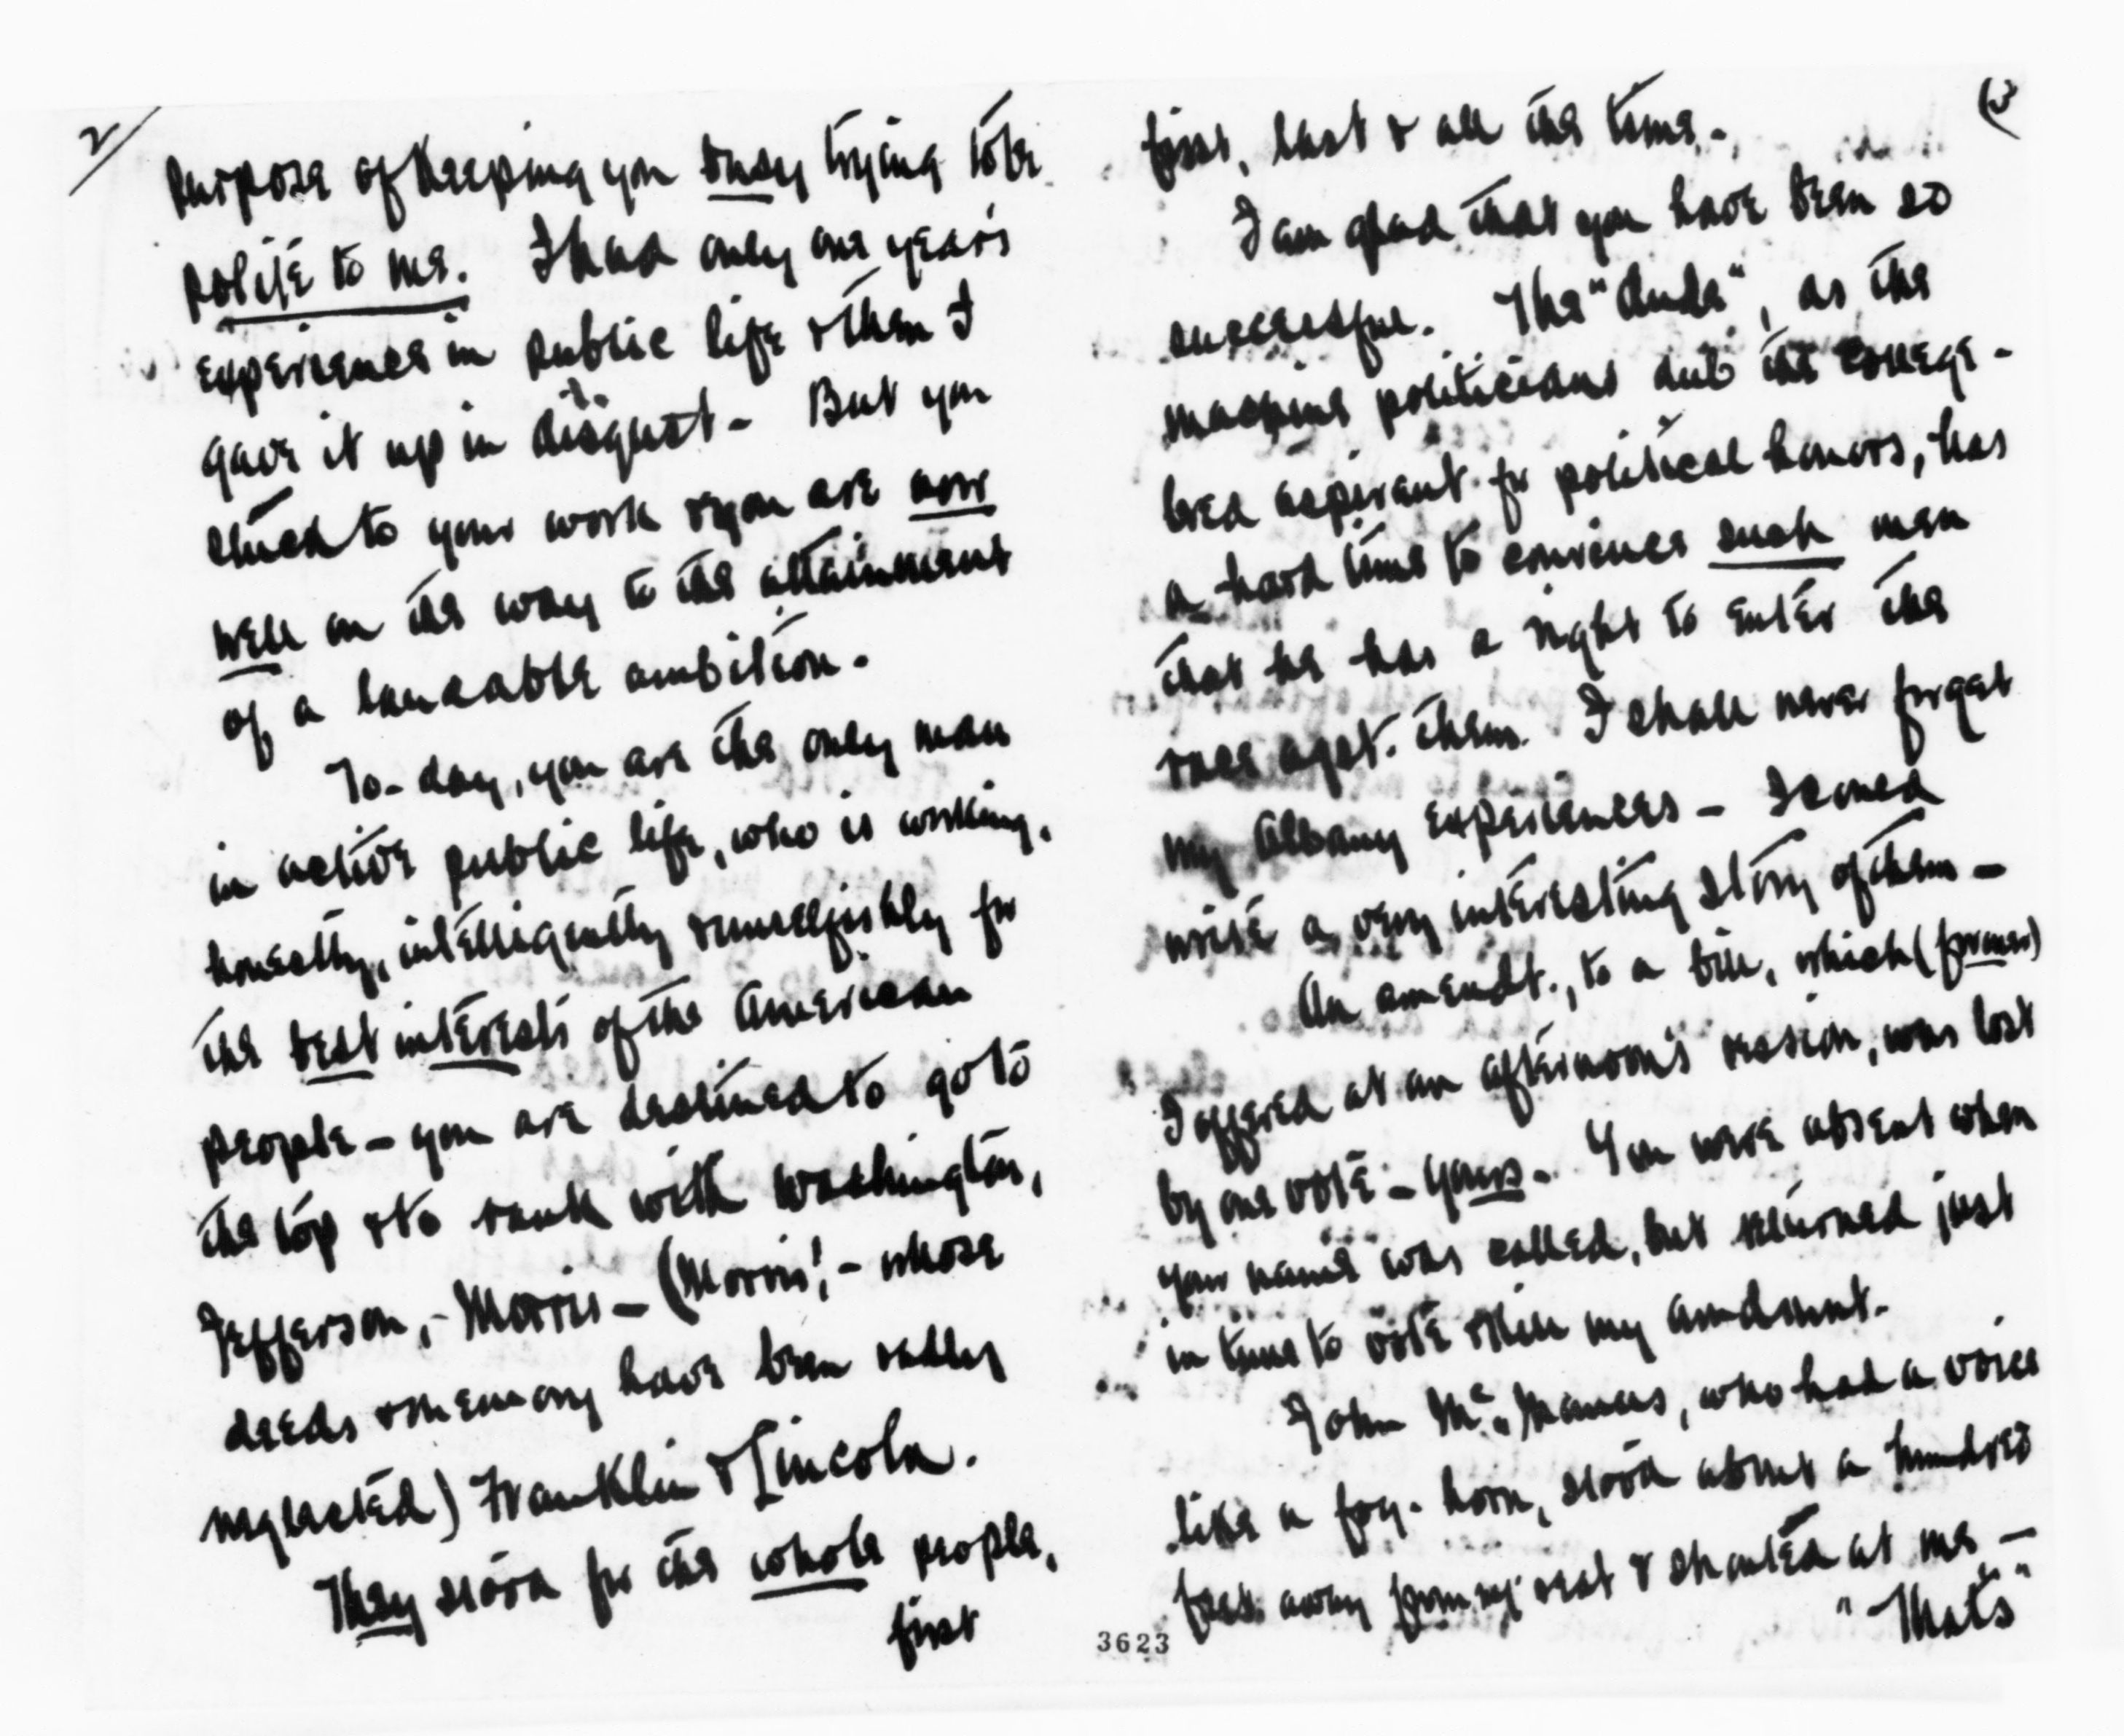 2/
purpose of keeping you busy trying to be
polite to me. I had only one year's
experience in public life & then I
gave it up in disgust - But you
stuck to your work & you are now
well on the way to the attainment
of a laudable ambition.
To-day, you are the only man
in active public life, who is working,
honestly, intelligently & unselfishly for
the best interests of the American
people - you are destined to go to
the top & to rank with Washington,
Jefferson, - Morris - (Morris! - whose
deeds & memory have been sadly
neglected) Franklin & Lincoln.
They stood for the whole people,
first
(3
first, last & all the time. -
I am glad that you have been so
successful. The "dude", as the
machine politicians dub the college-
bred aspirant for political honors, has
a hard time to convince such men
that he has a right to enter the
race agst. them. I shall never forget
my Albany experiences - I could
write a very interesting story of them -
An amendt., to a bill, which (former)
I offered at an afternoon's session, was lost
by one vote - yours - You were absent when
your name was called, but returned just
in time to vote & kill my amdment. -
John Mc. Manus, who had a voice
like a fog-horn, stood about a hundred
feet away from my seat & shouted at me -
"That's"
3623